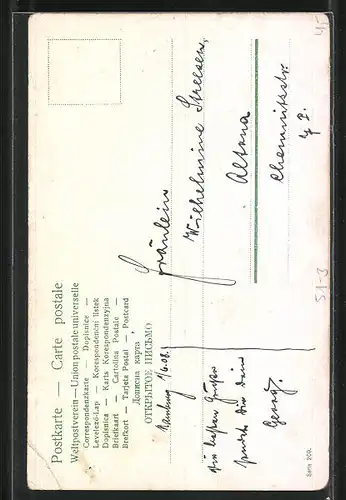 Postkarte — Carte postale
Weltpostverein — Union postale universelle
Correspondenzkarte — Dopisnice —
Levelező-Lap — Korespondenční lístek
Dopisnica — Karta Korespondenzyjna
Briefkaart — Cartolina Postale —
Brefkort — Tarjeta Postal — Postcard
Дописна карта
ОТКРЫТОЕ ПИСЬМО
Fräulein
Wilhelmine
Altona
Chemnitzstr.
Hamburg 1/6.08.
die besten Grüße
sendet dir dein
Georg.
Serie 209.
S1-3